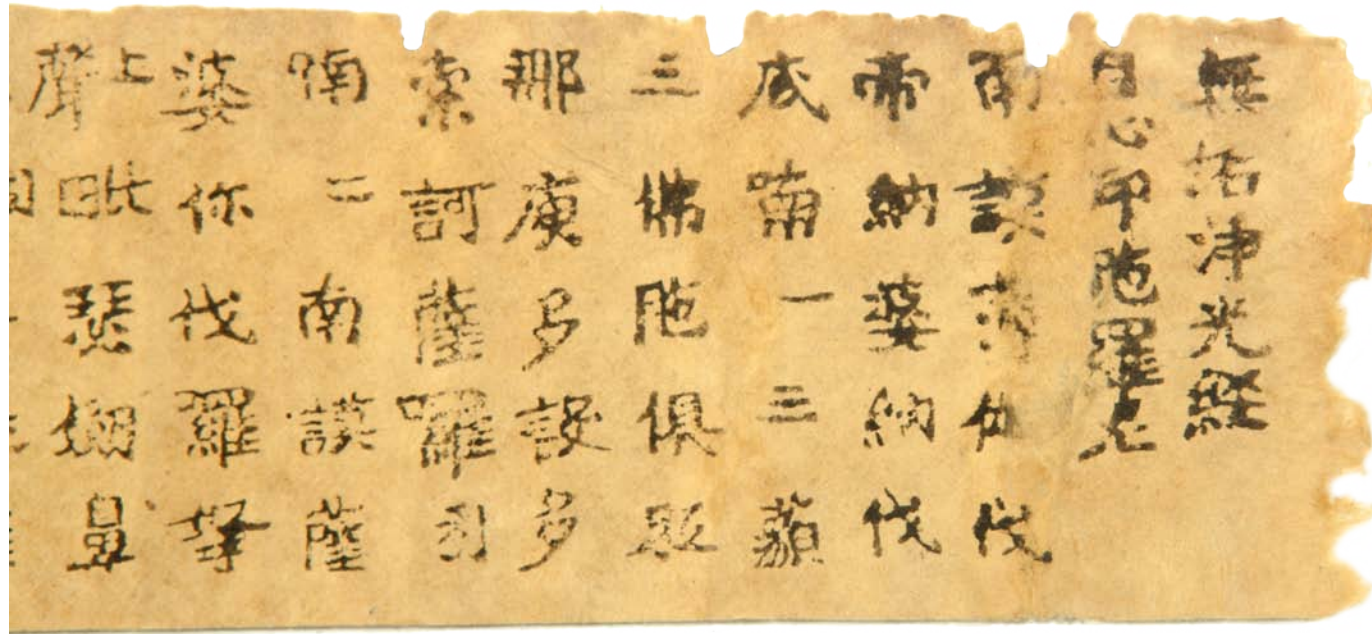 無垢净光経
自心印陁羅尼
南謨薄伽伐
帝納婆納伐
底喃一三藐
三佛陁俱胝
那庾多設多
索訶薩囉引
喃二南謨薩
婆你伐羅拏
上聲毗瑟劒鼻